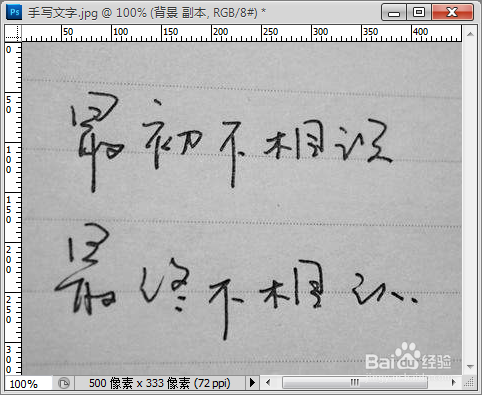 手写文字.jpg @ 100% (背景 副本, RGB/8#) *
0 50 100 150 200 250 300 350 400
0
50
100
150
200
250
300
最初不相识
最终不相认
Baidu经验
100% 500 像素 x 333 像素 (72 ppi)